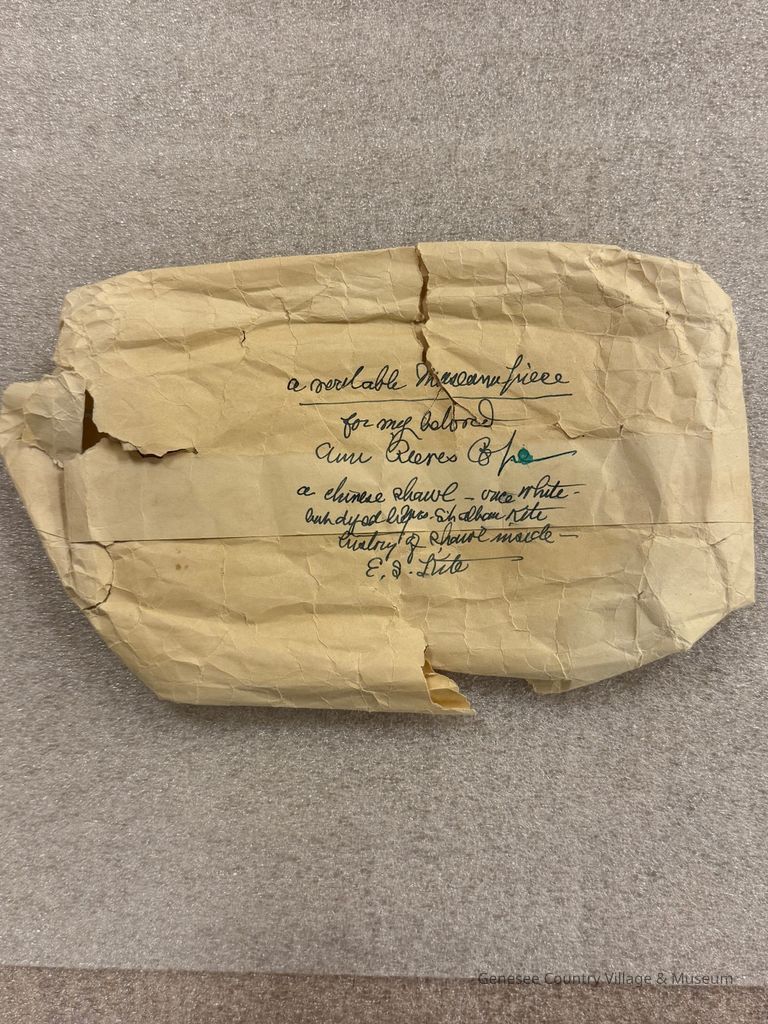 a veritable Museum piece
for my beloved
Ann Reeves
a chinese shawl - once white -
but dyed
history of shawl inside -
E. S. Kite
Genesee Country Village & Museum